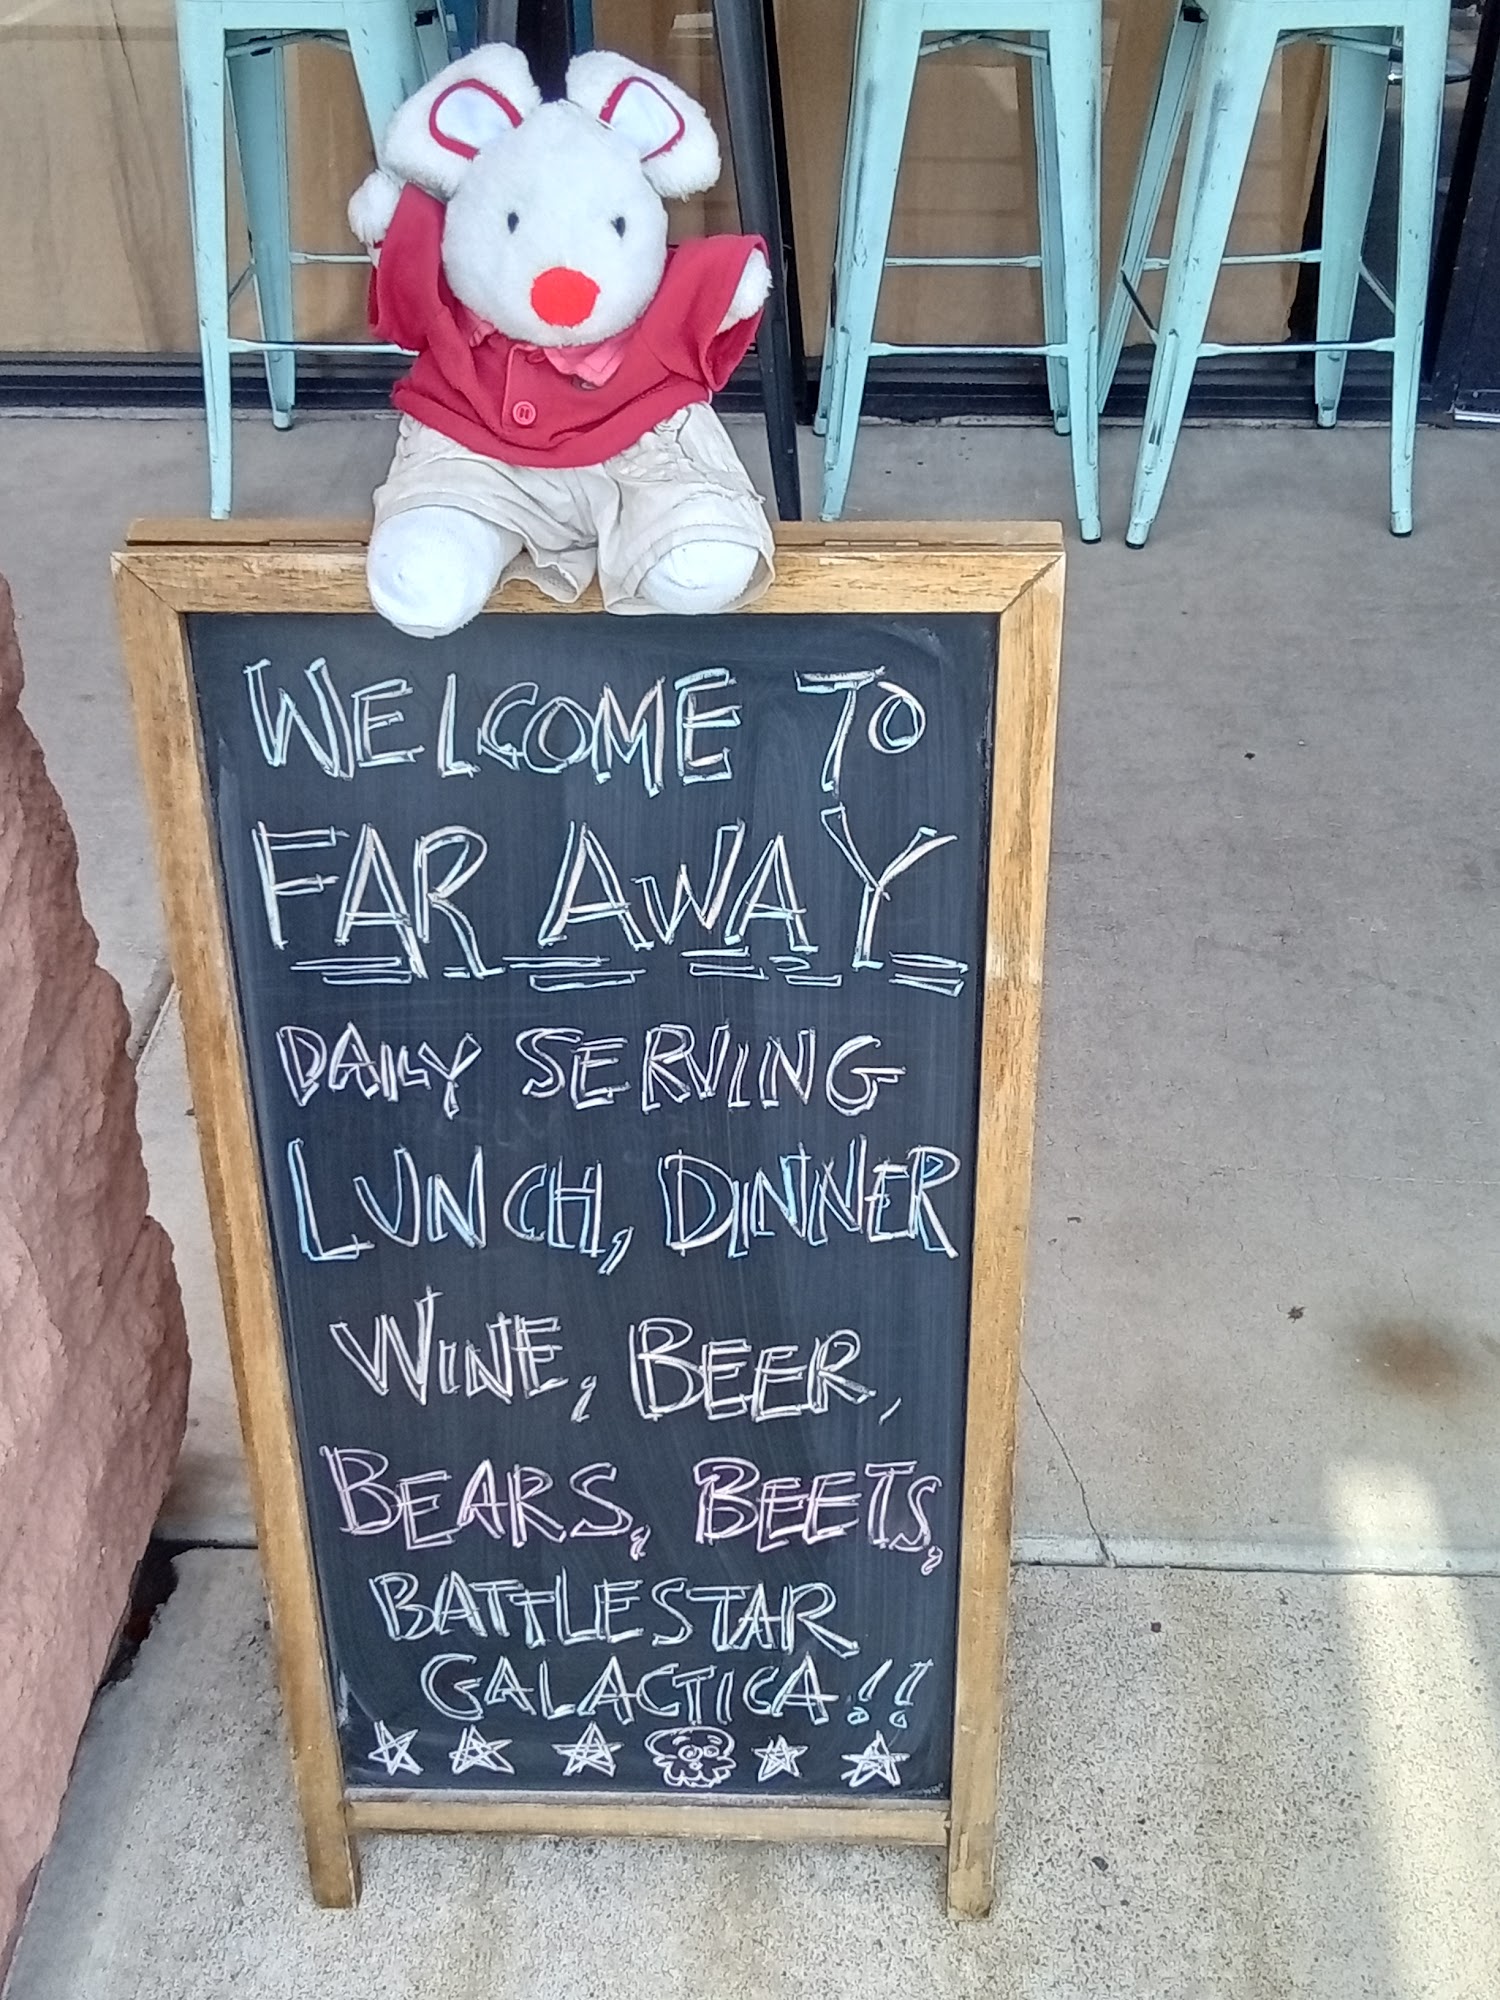 WELCOME TO
FAR AWAY
DAILY SERVING
LUNCH, DINNER
WINE, BEER,
BEARS, BEETS,
BATTLESTAR
GALACTICA!!